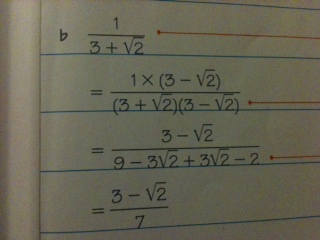 b 1/(3 + √2)
= 1 × (3 − √2)/((3 + √2)(3 − √2))
= (3 − √2)/(9 − 3√2 + 3√2 − 2)
= (3 − √2)/7